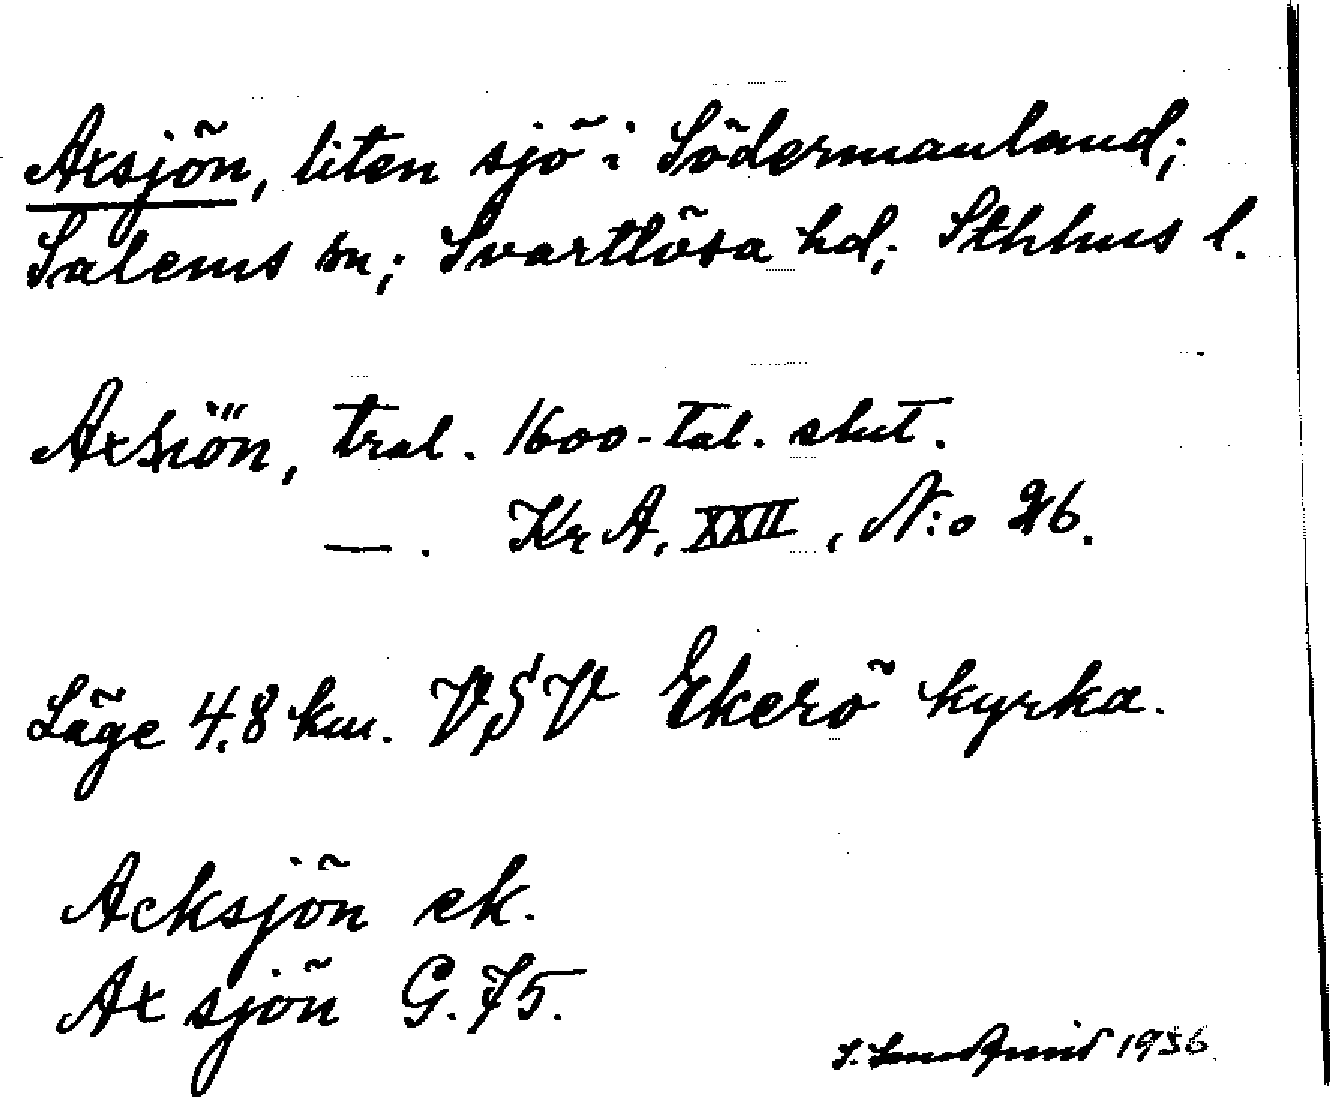 Axsjön, liten sjö i Södermanland;
Salems sn; Svartlösa hd; Sthlms l.
Axsiön, tral. 1600-tal. slut.
—. KrA, XXII, N:o 26.
Läge 4,8 km. VSV Ekerö kyrka.
Acksjön ek.
Axsjön G. 75.
1936